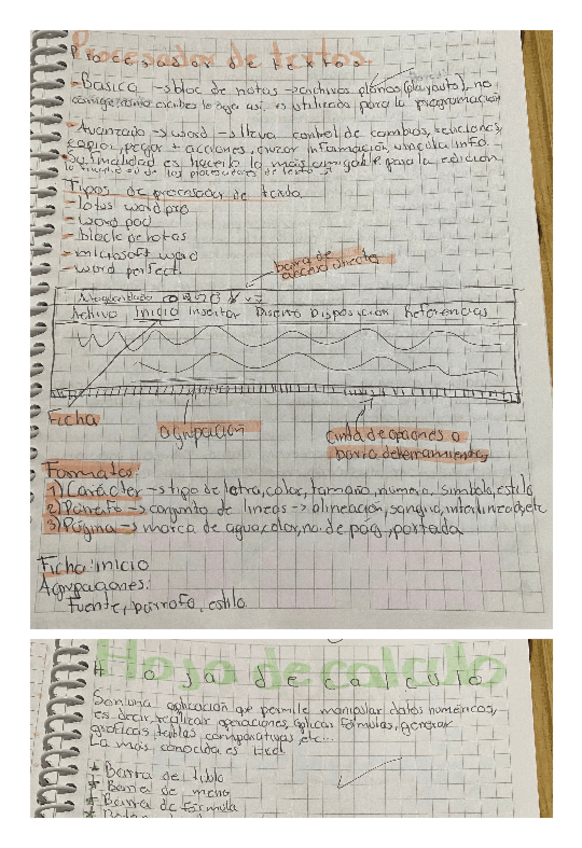 Procesador de textos
- Basica → bloc de notas → archivos planos (playouto), no
corrige como escribes lo deja asi, es utilizado para la programación
- Avanzado → word → lleva control de cambios, ediciones,
copiar, pegar + acciones, cruzar información, vincula info.
• Su finalidad es hacerlo lo más amigable para la edición
la finalidad de los procesadores de texto
Tipos de procesador de texto
- lotus word pro
- word pad
- block de notas
- microsoft word
- word perfect.
barra de
acceso directo
Archivo Inicio insertar Diseño Disposición Referencias
Ficha
agrupación
Cinta de opciones o
barra de herramientas
Formatos
1) Carácter → tipo de letra, color, tamaño, numero, simbolo, estilo
2) Párrafo → conjunto de lineas → alineación, sangria, interlineado, etc
3) Página → marca de agua, color, no. de pág, portada
Ficha: inicio
Agrupaciones:
Fuente, párrafo, estilo
Hoja de calculo
Son una aplicación que permite manipular datos númericos,
es decir, realizar operaciones, aplicas fórmulas, generar
graficas, tablas comparativas, etc...
La más conocida es Excel
* Barra de titulo
* Barra de menú
* Barra de fórmula